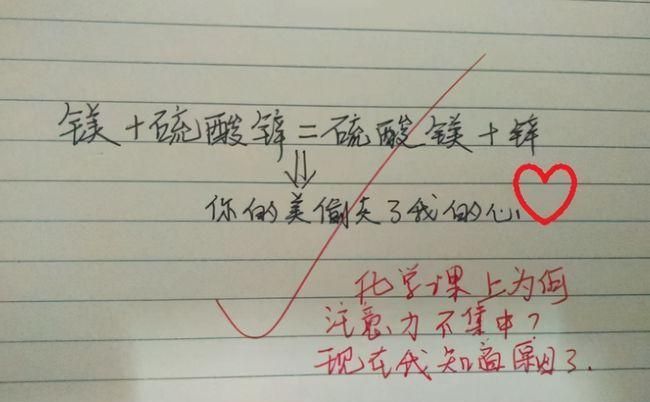 镁+硫酸锌=硫酸镁+锌
⇓
你的美偷走了我的心
化学课上为何
注意力不集中?
现在我知道原因了.